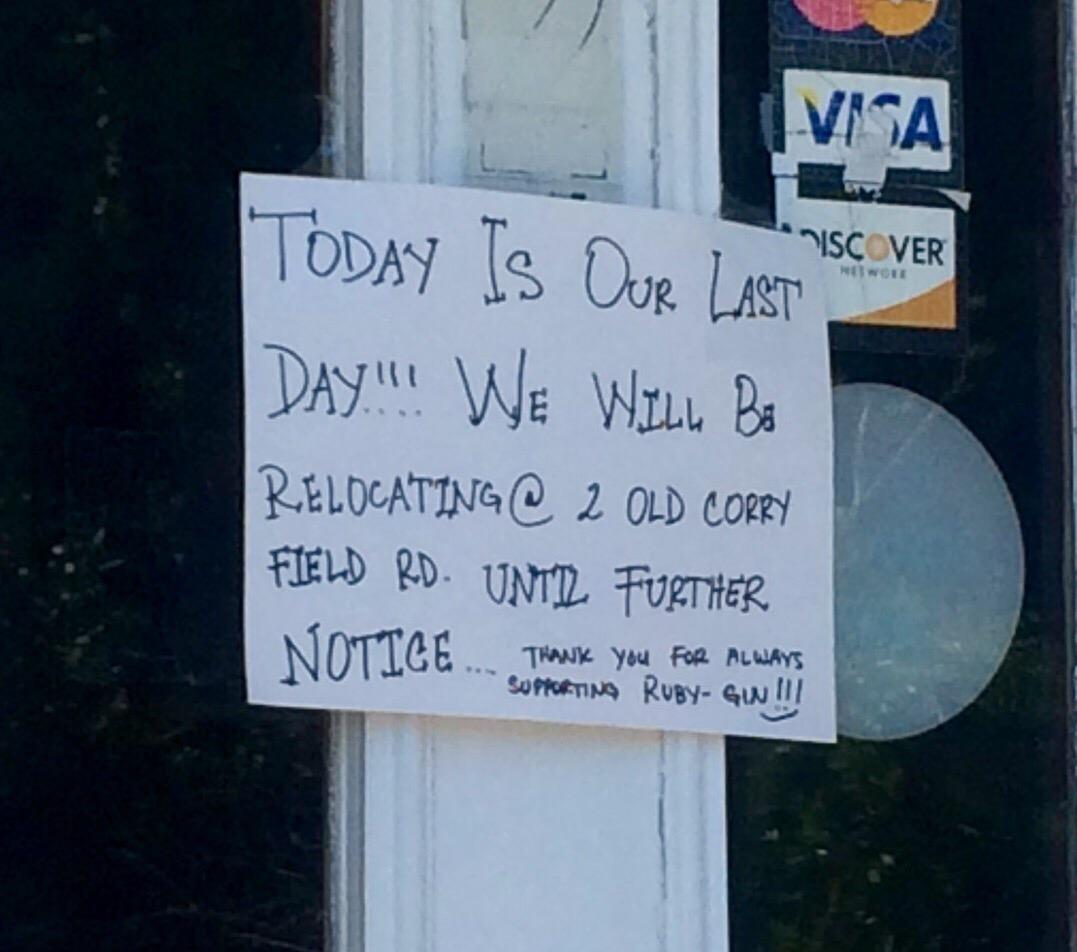 VISA
DISCOVER
NETWORK
TODAY IS OUR LAST
DAY!!! WE WILL BE
RELOCATING @ 2 OLD CORRY
FIELD RD. UNTIL FURTHER
NOTICE... THANK YOU FOR ALWAYS
SUPPORTING RUBY-GIN!!!